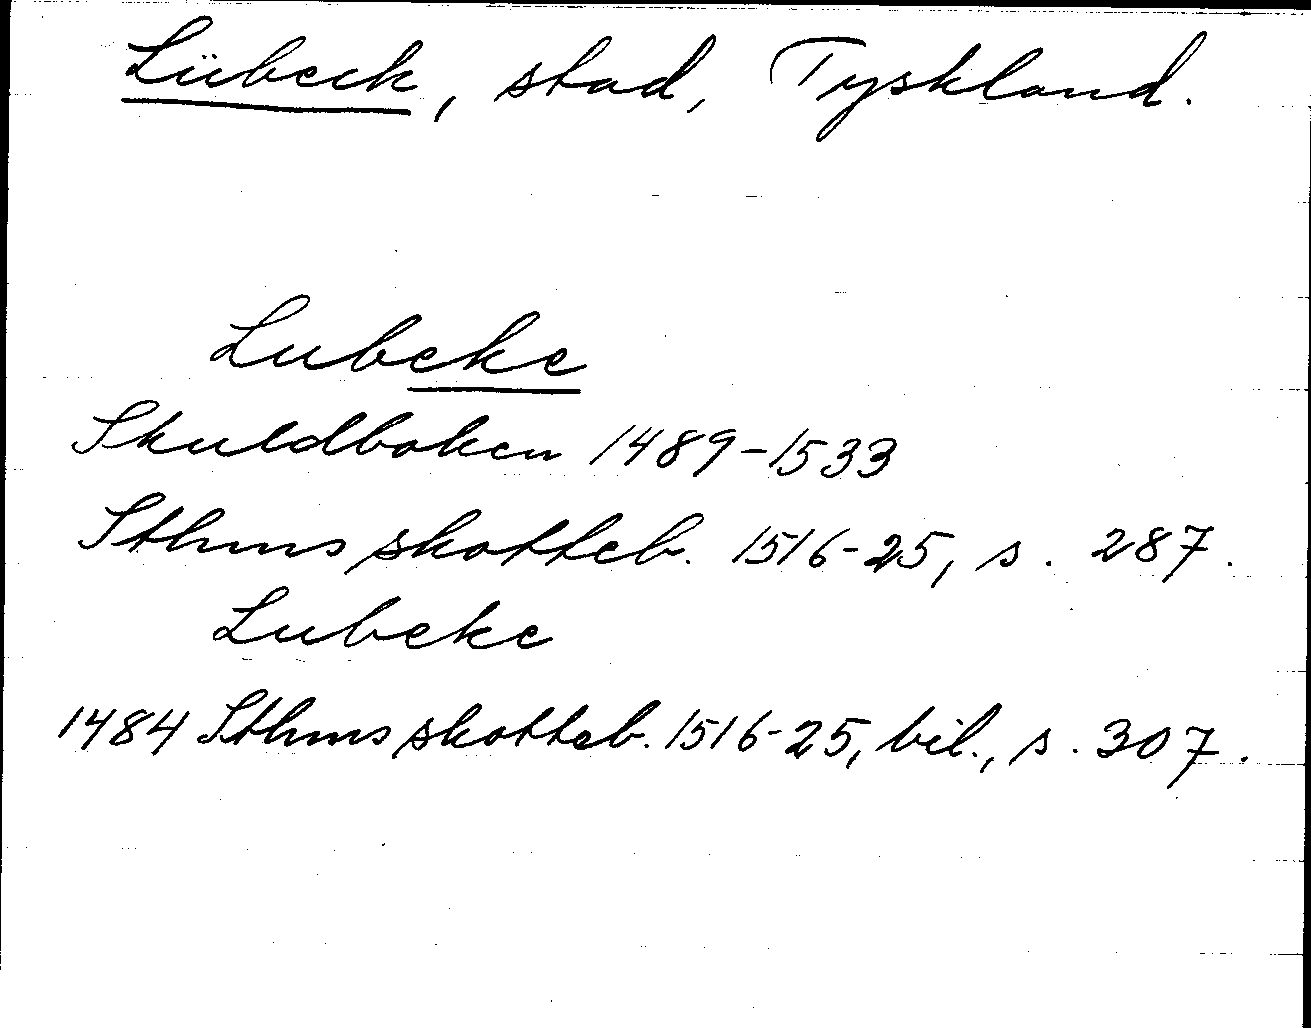 Lübeck, stad, Tyskland.
Lubeke
Skuldboken 1489-1533
Sthms skotteb. 1516-25, s. 287.
Lubeke
1484 Sthms skotteb. 1516-25, bil., s. 307.